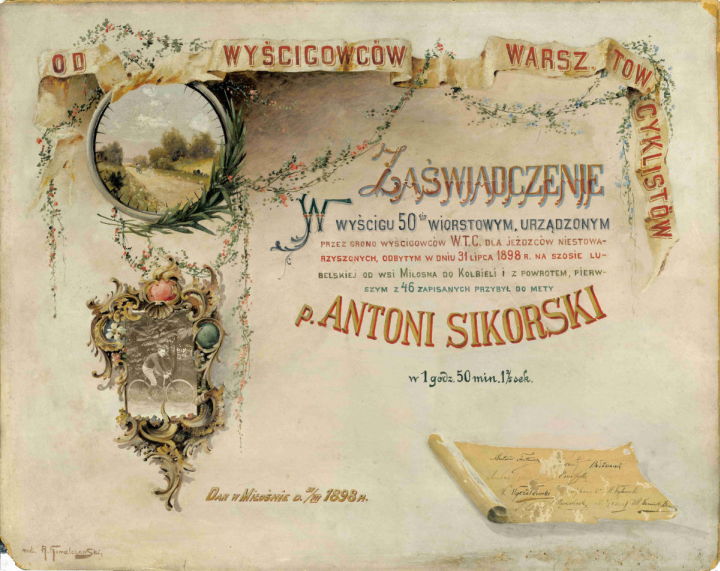 OD WYŚCIGOWCÓW WARSZ. TOW. CYKLISTÓW
ZAŚWIADCZENIE
W WYŚCIGU 50cio WIORSTOWYM, URZĄDZONYM
PRZEZ GRONO WYŚCIGOWCÓW W.T.C. DLA JEŹDZCÓW NIESTOWA-
RZYSZONYCH, ODBYTYM W DNIU 31 LIPCA 1898 R. NA SZOSIE LU-
BELSKIEJ OD WSI MIŁOSNA DO KOLBIELI I Z POWROTEM, PIERW-
SZYM Z 46 ZAPISANYCH PRZYBYŁ DO METY
P. ANTONI SIKORSKI
w 1 godz. 50 min. 1 sek.
DAN W MIŁOŚNIE D. 31/VII 1898 R.